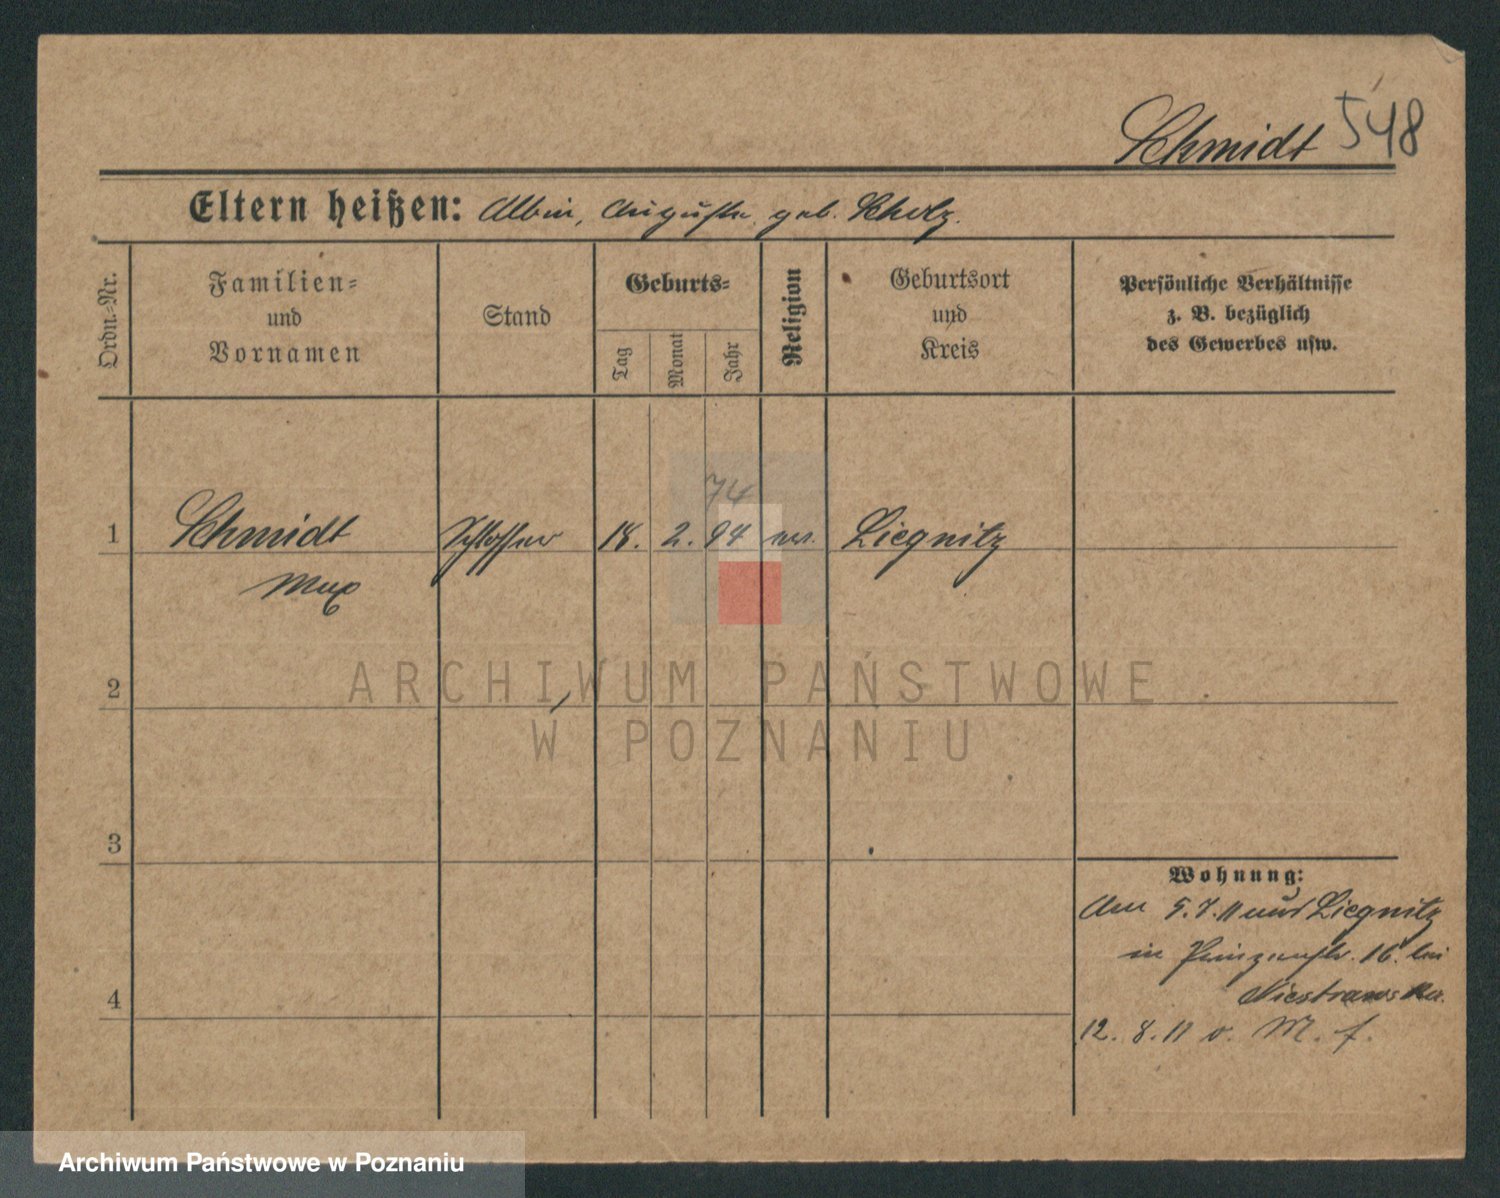 Schmidt 548
Eltern heißen: Albin, Auguste, geb. Scholz.
Ordn.-Nr.
Familien-
und
Vornamen
Stand
Geburts-
Tag
Monat
Jahr
Religion
Geburtsort
und
Kreis
Persönliche Verhältnisse
z. B. bezüglich
des Gewerbes usw.
74
1 Schmidt Schlosser 18. 2. 94 ev. Liegnitz
Max
2
3
4
Wohnung:
Am 5.7.11 aus Liegnitz
in Prinzenstr. 16. bei
12. 8. 11 v. M. f.
ARCHIWUM PAŃSTWOWE
W POZNANIU
Archiwum Państwowe w Poznaniu